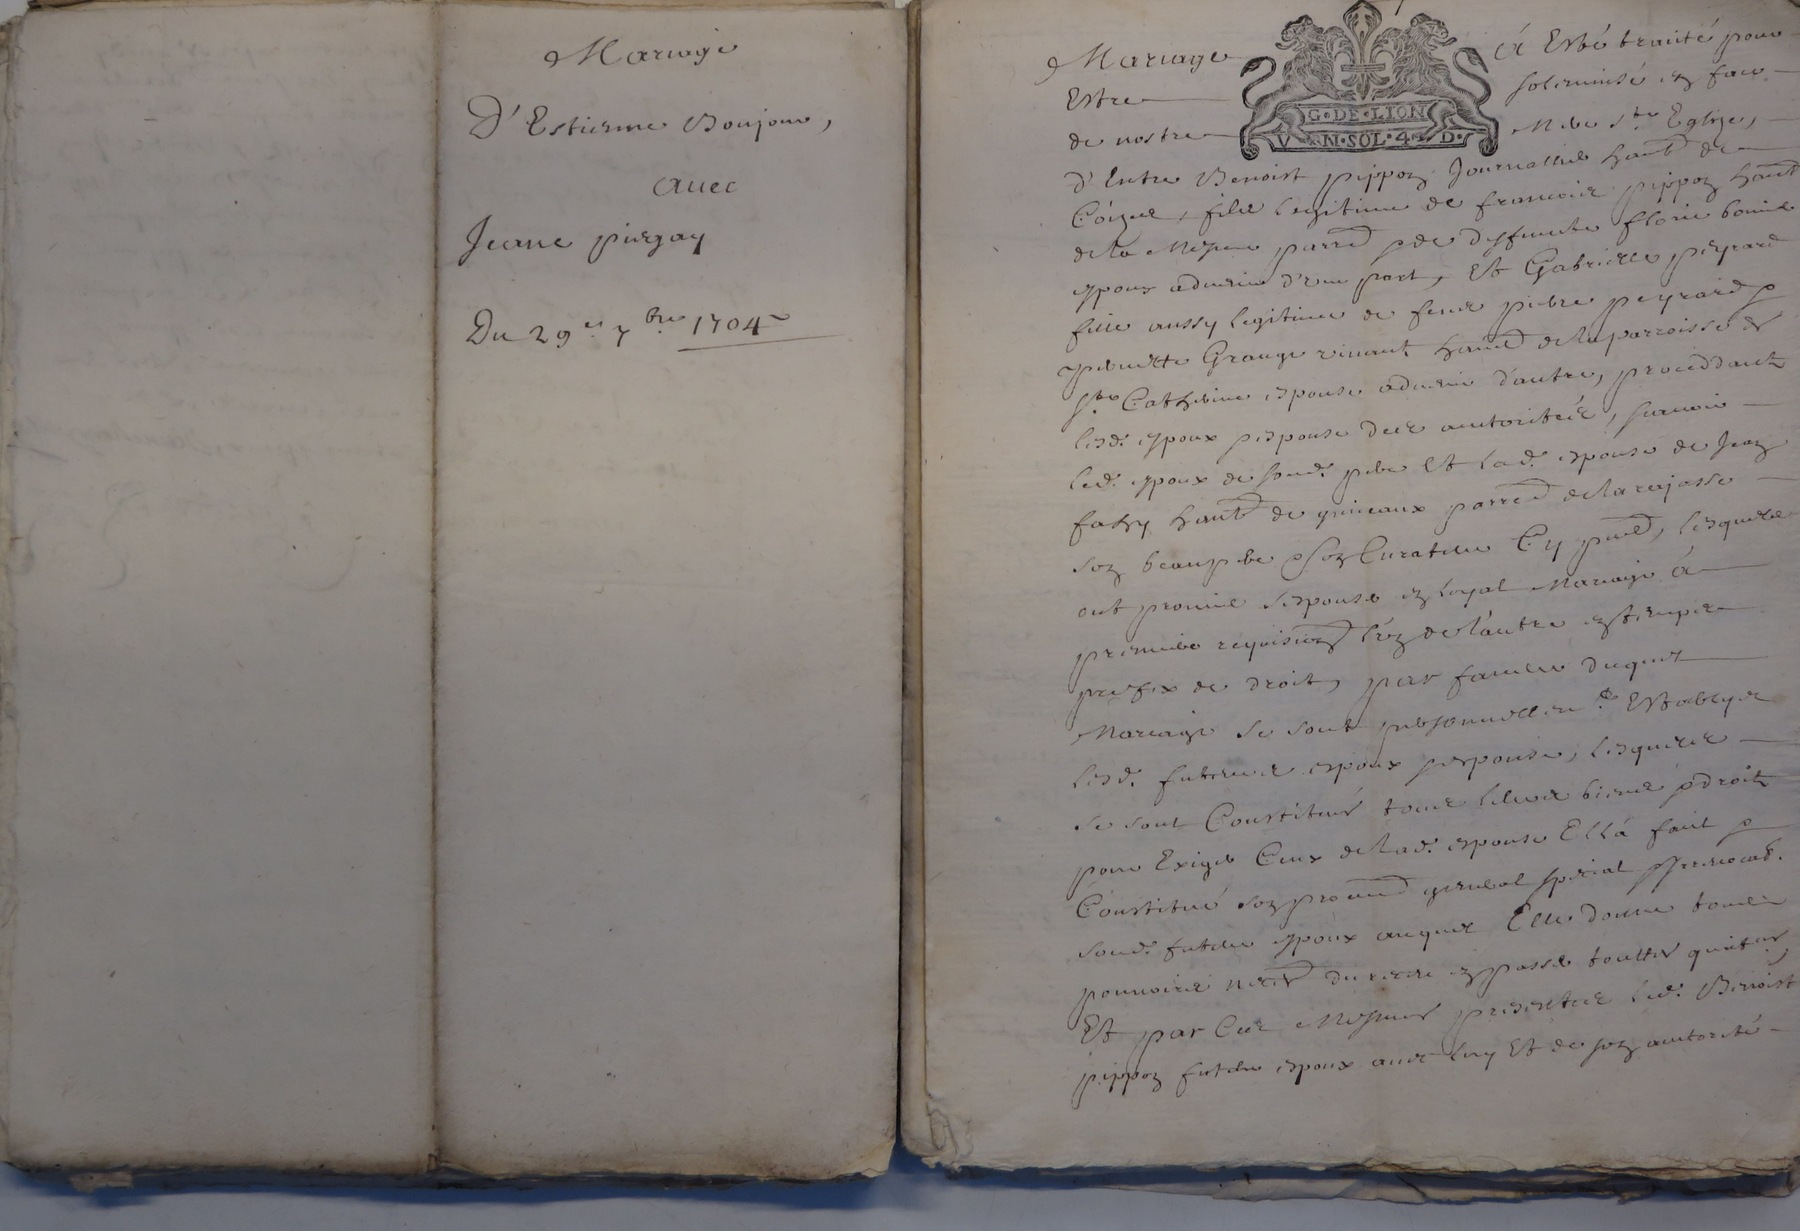 Mariage
D'Estienne Boujou,
avec
Jeane piegay
Du 29e 7bre 1704
Mariage á Esté traitté pour
Estre solemnisé en face
de nostre Mere Ste Eglize,
G·DE·LION
V N·SOL·4 D·
d'Entre Benoist pippon Journallier hant de
Coize, filz legitime de francois pippon hant
dela Mesme parred & de deffuncte florie bonie
espoux advenir d'une part, Et Gabrielle peyrard
fille aussy legitime de feue pierre peyrard &
pernette Grange vivant hant de la parroisse de
Ste Catherine espouse advenir d'autre, proceddantz
lesd. espoux & espouse des autorités, scavoir
led. espoux de sond. pere Et lad. espouse de Jean
fahy hant de parred de larajasse
son beaupere & son Curateur Cy pnt, lesquels
ont promis s'espouser en loyal Mariage á
premiere requision l'un de l'autre en temps
prefix de droit, par faveur duquel
Mariage se sont personnellemt Establys
lesd. futeurs espoux & espouse, lesquels
se sont Constitués tous leurs biens & droitz
pour Exiger Ceux de lad. espouse Ell'á fait &
Constitué son procureur general special & irrevocab.
sond. futeur espoux auquel Elle donne tous
pouvoirs necres en passer touttes quittces,
Et par Ces Mesmes presentes led. Benoist
pippon futeur espoux avec luy Et de son autorité